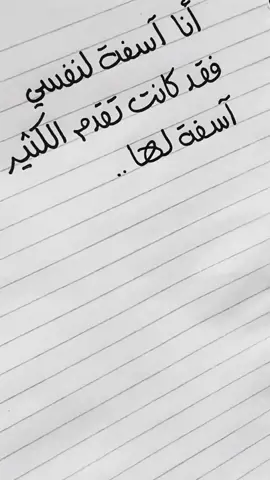 أنا آسفة لنفسي
فقد كانت تقدم الكثير
آسفة لها..